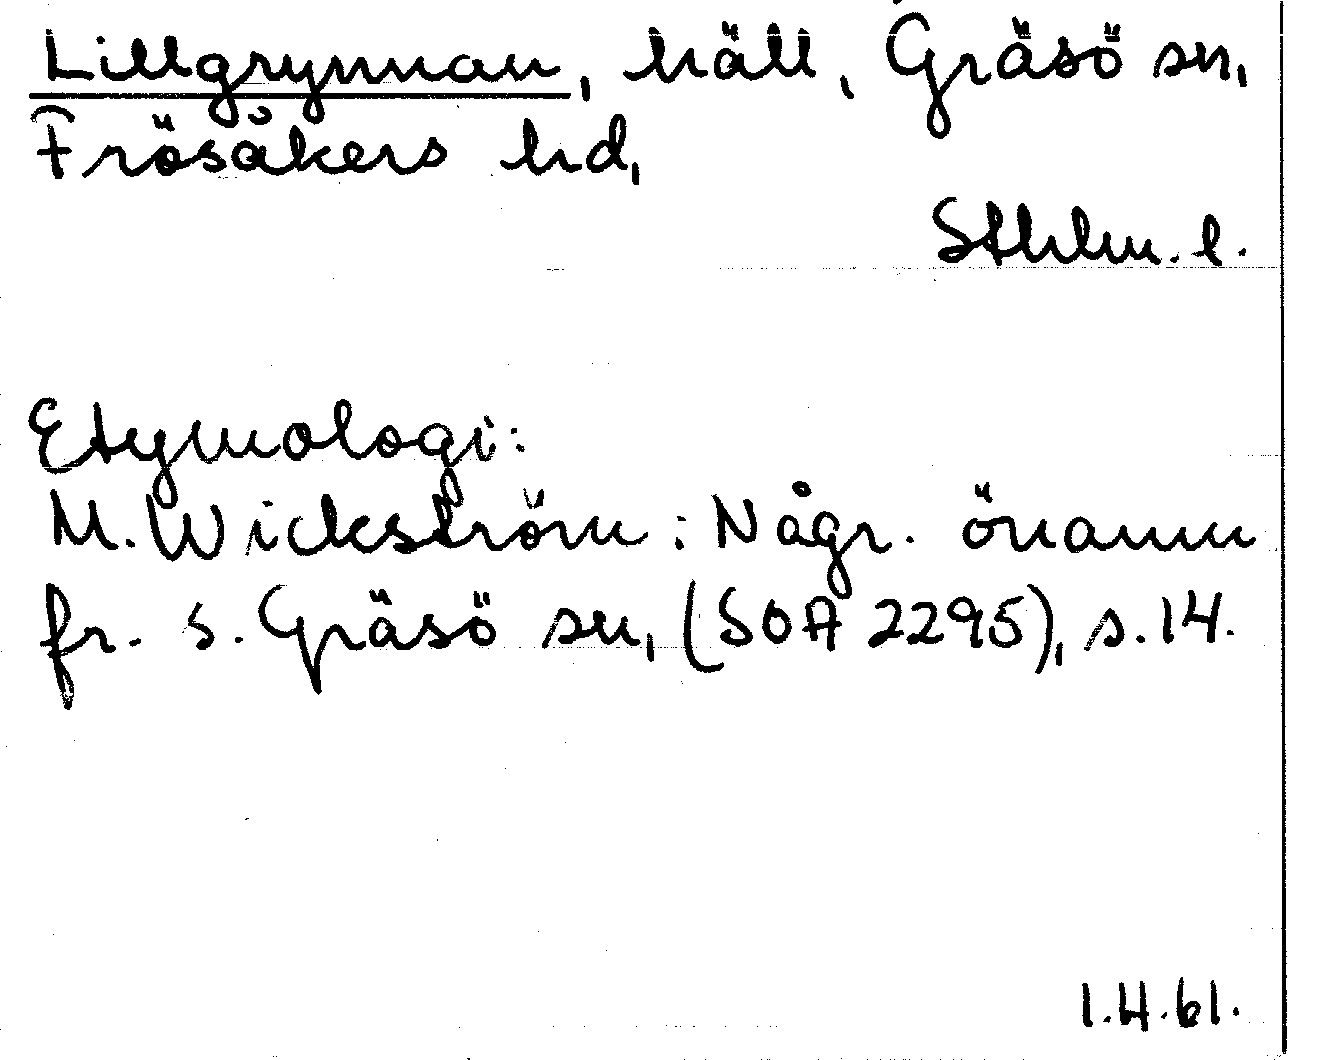 Lillgrynnan, häll, Gräsö sn,
Frösåkers hd,
Sthlm. l.
Etymologi:
M. Wickström: Någr. önamn
fr. s. Gräsö sn, (SOA 2295), s. 14.
1.4.61.